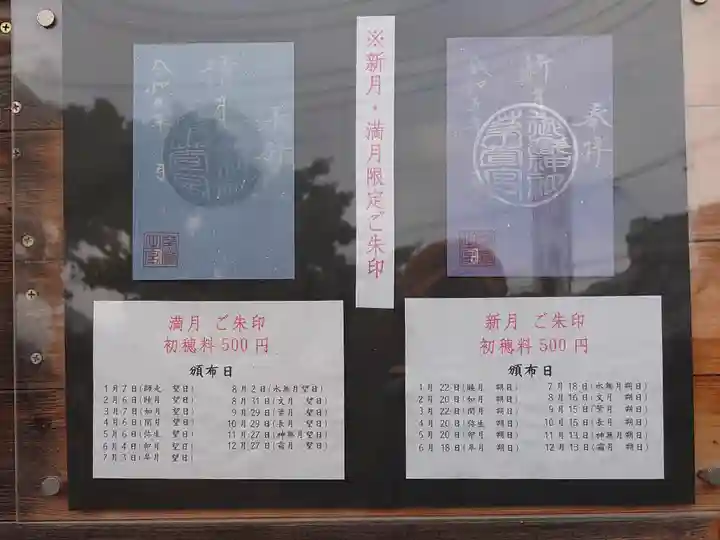 ※新月・満月限定ご朱印
奉拝
満月 ご朱印
初穂料500円
頒布日
1月7日(師走 望日)
2月6日(睦月 望日)
3月7日(如月 望日)
4月6日(閏月 望日)
5月6日(弥生 望日)
6月4日(卯月 望日)
7月3日(皐月 望日)
8月2日(水無月望日)
8月31日(文月 望日)
9月29日(葉月 望日)
10月29日(長月 望日)
11月27日(神無月望日)
12月27日(霜月 望日)
新月 ご朱印
初穂料500円
頒布日
1月22日(睦月 朔日)
2月20日(如月 朔日)
3月22日(閏月 朔日)
4月20日(弥生 朔日)
5月20日(卯月 朔日)
6月18日(皐月 朔日)
7月18日(水無月朔日)
8月16日(文月 朔日)
9月15日(葉月 朔日)
10月15日(長月 朔日)
11月13日(神無月朔日)
12月13日(霜月 朔日)